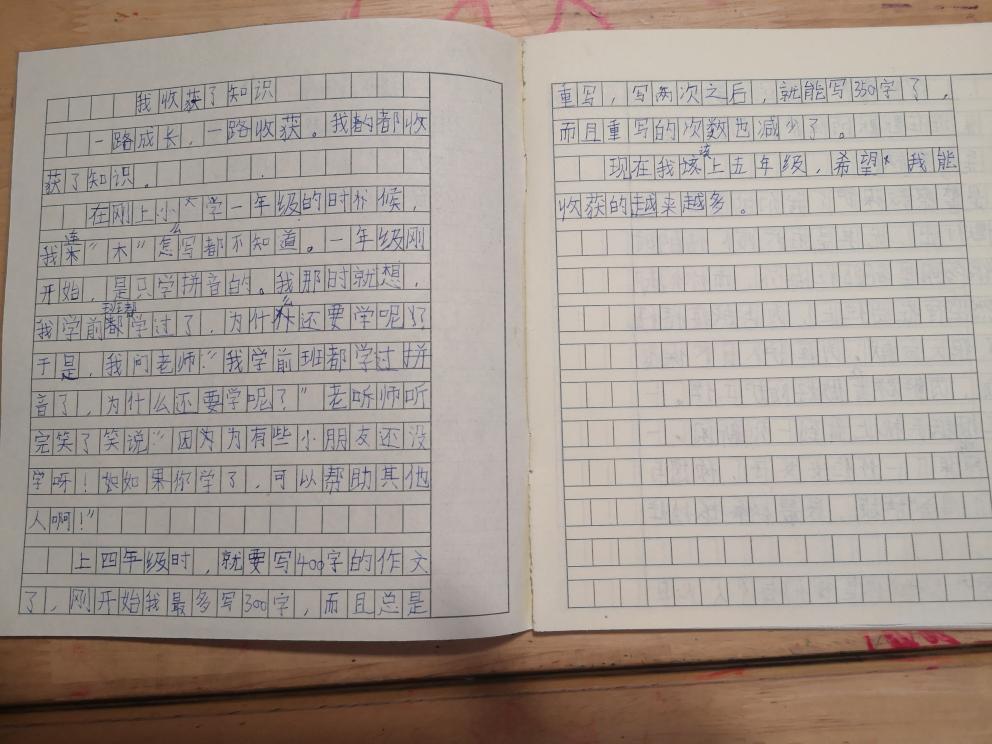 我收获了知识
一路成长，一路收获。我的都收
获了知识。
在刚上小学一年级的时候，
我连"木"怎么写都不知道。一年级刚
开始，是只学拼音的。我那时就想，
我学前班都学过了，为什么还要学呢？
于是，我问老师："我学前班都学过拼
音了，为什么还要学呢？"老师听
完笑了笑说："因为有些小朋友还没
学呀！如如果你学了，可以帮助其他
人啊！"
上四年级时，就要写400字的作文
了，刚开始我最多写300字，而且总是
重写，写两次之后，就能写350字了，
而且重写的次数也减少了。
现在我该上五年级，希望我能
收获的越来越多。